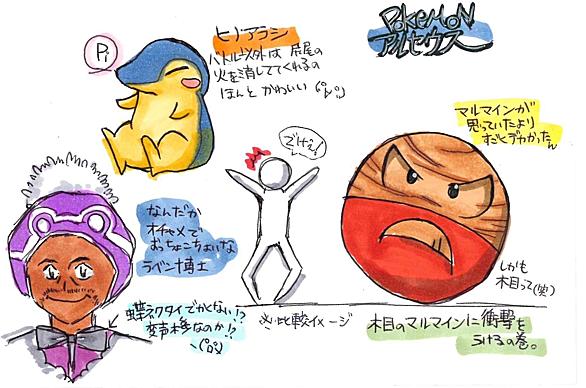 PoKeMoN
アルセウス
ヒノアラシ
バトル以外は 背尾の
火を消しててくれるの
ほんと かわいい
Pi
でけぇ!
マルマインが
思っていたより
すごくデカかったん
なんだか
オチャメで
おっちょこちょいな
ラベン博士
しかも
木目って(笑)
蝶ネクタイでかくない!?
標準なのか!?
※比較イメージ
木目のマルマインに衝撃を
うけるの巻。